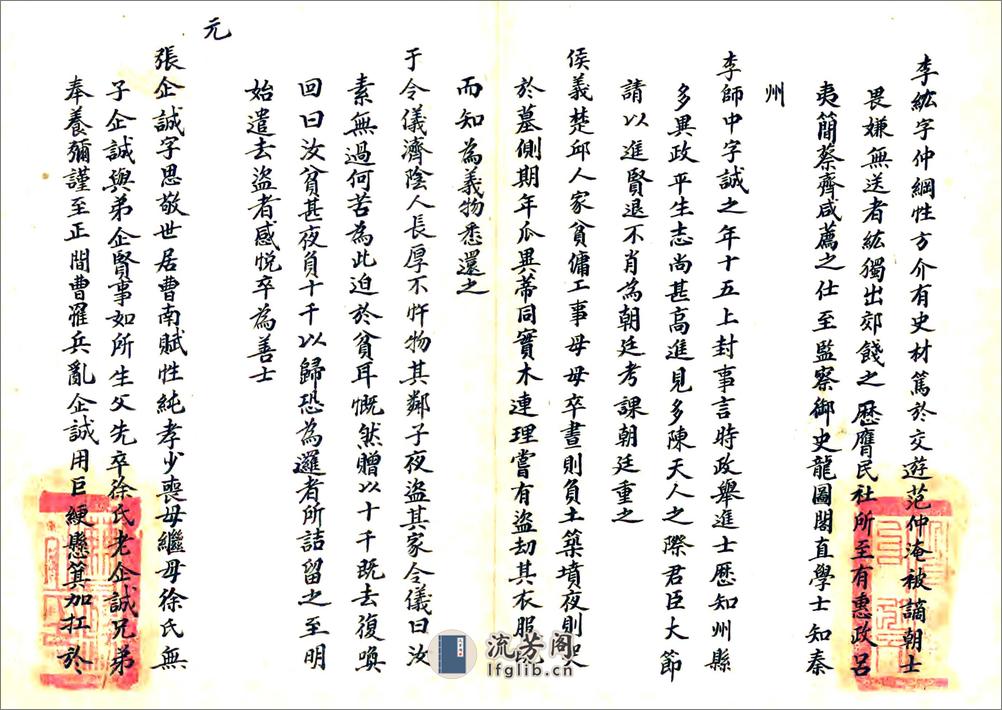 李紘字仲綱性方介有史材篤於交遊范仲淹被謫朝士
畏嫌無送者紘獨出郊餞之歷膺民社所至有惠政呂
夷簡蔡齊咸薦之仕至監察御史龍圖閣直學士知秦
州
李師中字誠之年十五上封事言時政舉進士歷知州縣
多異政平生志尚甚高進見多陳天人之際君臣大節
請以進賢退不肖為朝廷考課朝廷重之
侯義楚邱人家貧傭工事母母卒晝則負土築墳夜則
於墓側期年瓜異蒂同實木連理嘗有盜劫其衣服
而知為義物悉還之
于令儀濟陰人長厚不忤物其鄰子夜盜其家令儀曰汝
素無過何苦為此迫於貧耳慨然贈以十千既去復喚
回曰汝貧甚夜負十千以歸恐為邏者所詰留之至明
始遣去盜者感悅卒為善士
元
張企誠字思敬世居曹南賦性純孝少喪母繼母徐氏無
子企誠與弟企賢事如所生父先卒徐氏老企誠兄弟
奉養彌謹至正間曹罹兵亂企誠用巨綆懸箕加扛於
流芳阁
lfglib.cn